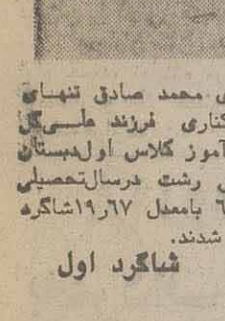 ی محمد صادق تنهای
کناری فرزند علی‌گل
آموز کلاس اول‌دبستان
رشت درسال‌تحصیلی
٦ بامعدل ١٩ر٦٧شاگرد
شدند.
شاگرد اول